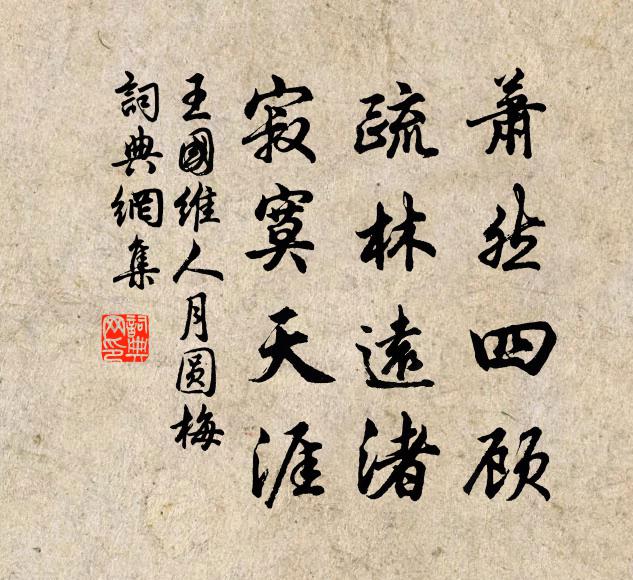 蕭然四顾
疏林遠渚
寂寞天涯
王國維人月圆梅
詞典網集
詞典网印